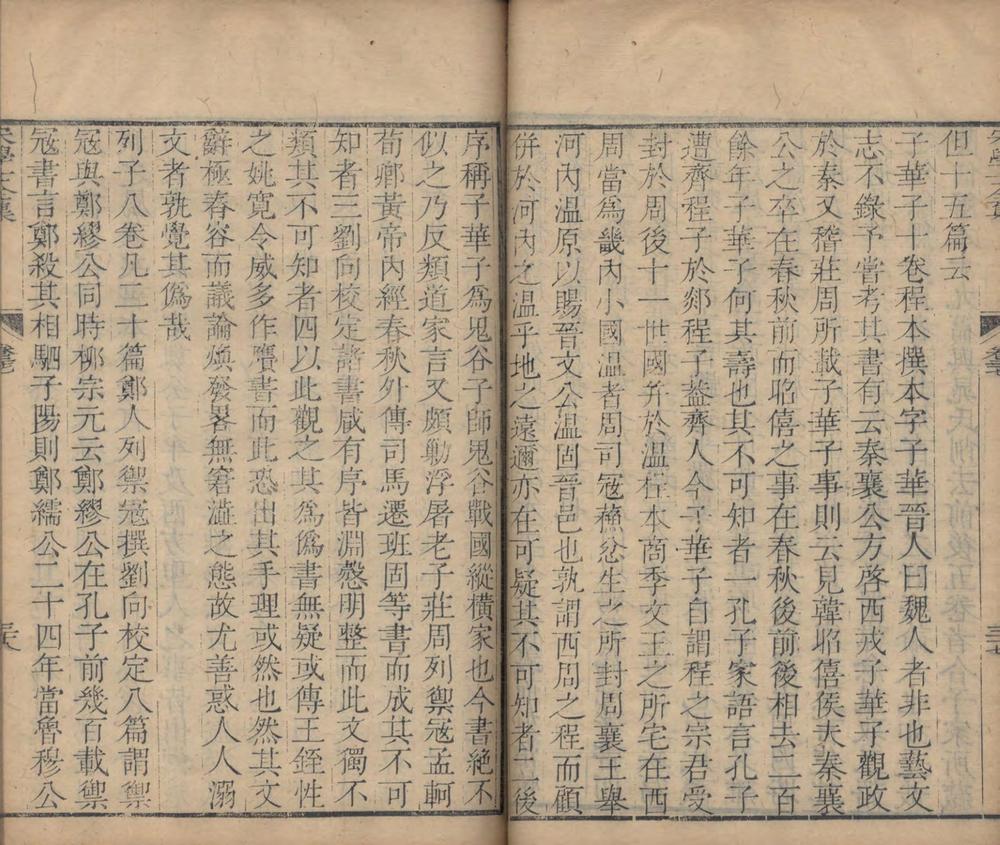 但十五篇云
子華子十卷程本撰本字子華晉人曰魏人者非也藝文
志不錄予嘗考其書有云秦襄公方啓西戎子華子觀政
於秦又稽莊周所載子華子事則云見韓昭僖侯夫秦襄
公之卒在春秋前而昭僖之事在春秋後前後相去二百
餘年子華子何其壽也其不可知者一孔子家語言孔子
遭齊程子於郯程子蓋齊人今子華子自謂程之宗君受
封於周後十一世國并於溫程本商季文王之所宅在西
周當爲畿內小國溫者周司寇蘇忿生之所封周襄王舉
河內溫原以賜晉文公溫固晉邑也孰謂西周之程而顧
併於河內之溫乎地之遠邇亦在可疑其不可知者二後
序稱子華子爲鬼谷子師鬼谷戰國縱橫家也今書絕不
似之乃反類道家言又頗勦浮屠老子莊周列禦寇孟軻
荀卿黃帝內經春秋外傳司馬遷班固等書而成其不可
知者三劉向校定諸書咸有序皆淵慤明整而此文獨不
類其不可知者四以此觀之其爲僞書無疑或傳王銍性
之姚寬令威多作贋書而此恐出其手理或然也然其文
辭極舂容而議論煥發畧無窘澁之態故尤善惑人人溺
文者孰覺其僞哉
列子八卷凡二十篇鄭人列禦寇撰劉向校定八篇謂禦
寇與鄭繆公同時柳宗元云鄭繆公在孔子前幾百載禦
寇書言鄭殺其相駟子陽則鄭繻公二十四年當魯穆公